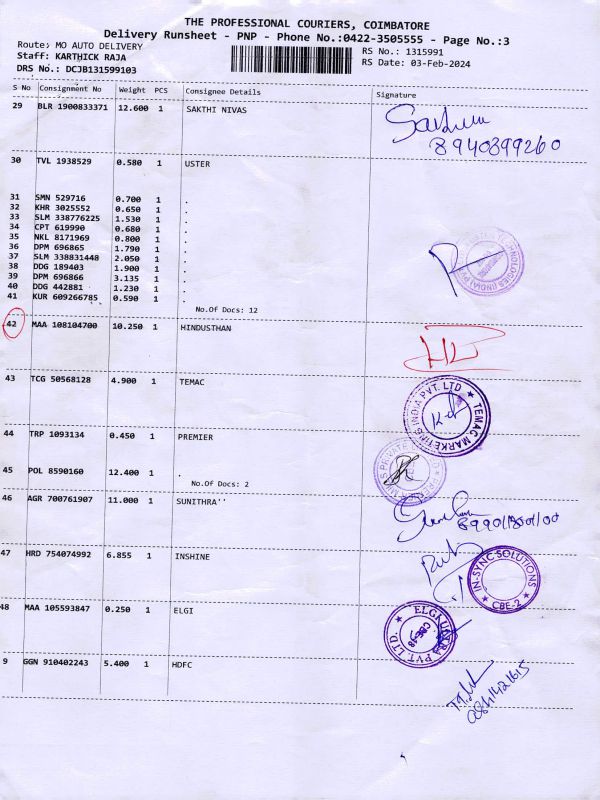 THE PROFESSIONAL COURIERS, COIMBATORE
Delivery Runsheet - PNP - Phone No.:0422-3505555 - Page No.:3
Route: MO AUTO DELIVERY RS No.: 1315991
Staff: KARTHICK RAJA RS Date: 03-Feb-2024
DRS No.: DCJB131599103
S No Consignment No Weight PCS Consignee Details Signature
29 BLR 1900833371 12.600 1 SAKTHI NIVAS
8940899260
30 TVL 1938529 0.580 1 USTER
31 SMN 529716 0.700 1 .
32 KHR 3025552 0.650 1 .
33 SLM 338776225 1.530 1 .
34 CPT 619990 0.680 1 .
35 NKL 8171969 0.800 1 .
36 DPM 696865 1.790 1 .
37 SLM 338831448 2.050 1 .
38 DDG 189403 1.900 1 .
39 DPM 696866 3.135 1 .
40 DDG 442881 1.230 1 .
41 KUR 609266785 0.590 1 .
TECHNOLOGIES (INDIA) PVT
No.Of Docs: 12
42 MAA 108104700 10.250 1 HINDUSTHAN
43 TCG 50568128 4.900 1 TEMAC
TEMAC MARKETING INDIA PVT. LTD
44 TRP 1093134 0.450 1 PREMIER
45 POL 8590160 12.400 1 .
No.Of Docs: 2
46 AGR 700761907 11.000 1 SUNITHRA''
47 HRD 754074992 6.855 1 INSHINE
IN-SYNC SOLUTIONS
CBE-2
48 MAA 105593847 0.250 1 ELGI
ELGI ULTRA PVT. LTD.
CBE-18
9 GGN 910402243 5.400 1 HDFC